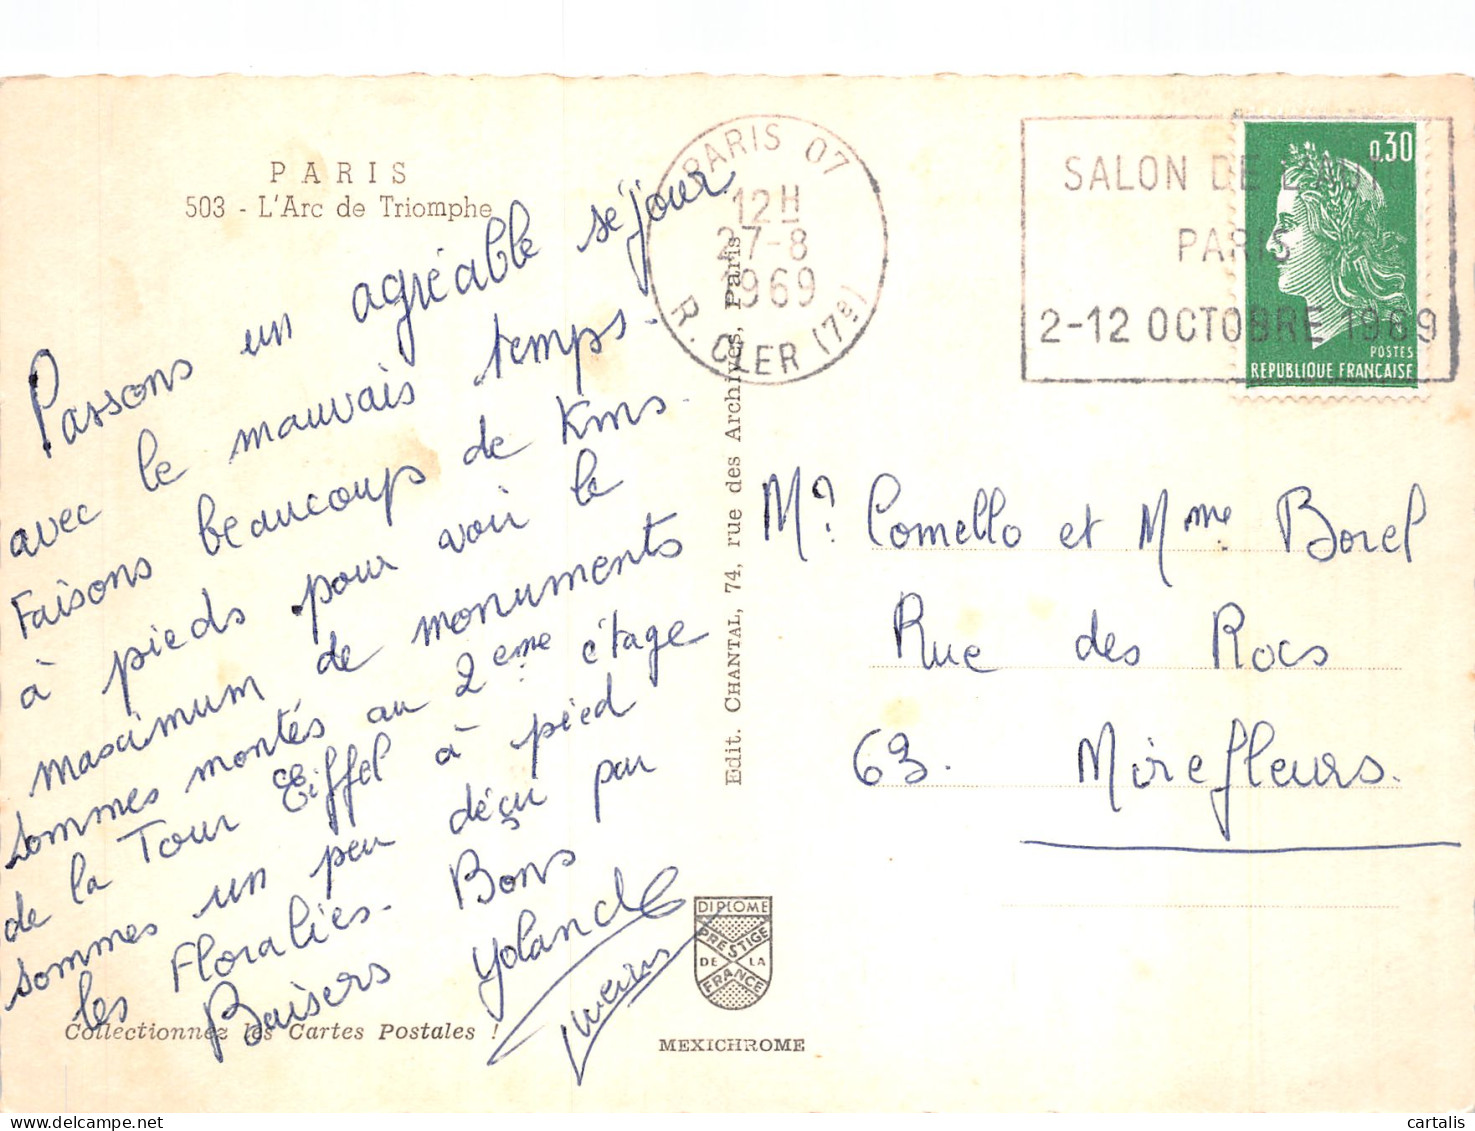 PARIS
503 - L'Arc de Triomphe
Passons un agréable séjour
avec le mauvais temps.
Faisons beaucoup de Kms.
à pieds pour voir le
maximum de monuments
sommes montés au 2eme étage
de la Tour Eiffel à pied
sommes un peu déçu par
les Floralies. Bons
Baisers Yolande
Collectionnez les Cartes Postales !
Edit. CHANTAL, 74, rue des Archives, Paris
PARIS 07
12H
27-8
1969
R. CLER (7e)
SALON DE L'AUTO
PARIS
2-12 OCTOBRE 1969
0,30
POSTES
REPUBLIQUE FRANÇAISE
Mr Comello et Mme Borel
Rue des Rocs
63. Mirefleurs.
DIPLOME
PRESTIGE
DE LA
FRANCE
MEXICHROME
cartalis